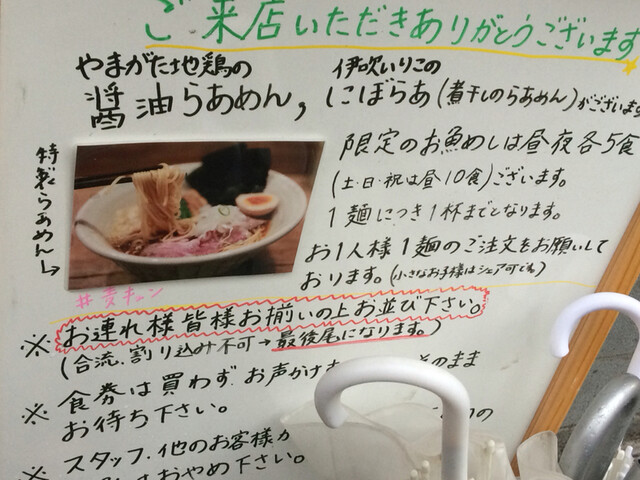 ご来店いただきありがとうございます
やまがた地鶏の 伊吹いりこの
醤油らあめん, にぼらあ(煮干しのらあめん)がございます
限定のお魚めしは昼夜各5食
(土・日・祝は昼10食)ございます。
1麺につき1杯までとなります。
お1人様1麺のご注文をお願いして
おります。(小さなお子様はシェア可です)
特製らあめん→
#麦キュン
※お連れ様皆様お揃いの上お並び下さい。
(合流、割り込み不可→最後尾になります。)
※食券は買わず お声がけ そのまま
お待ち下さい。
の
※スタッフ・他のお客様
おやめ下さい。